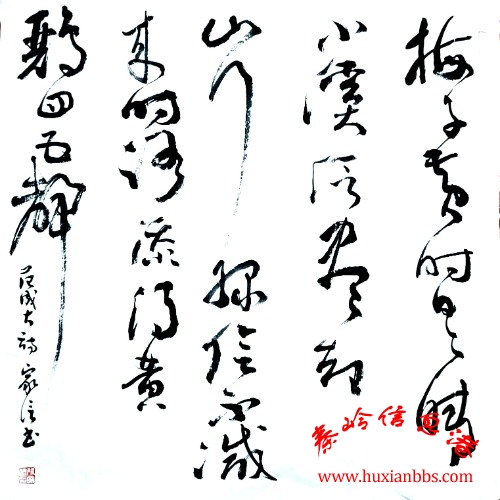 梅子黄时日日晴
小溪泛尽却
山行绿阴不减
来时路添得黄
鹂四五声
范成大诗 家信书
秦岭信
www.huxianbbs.com